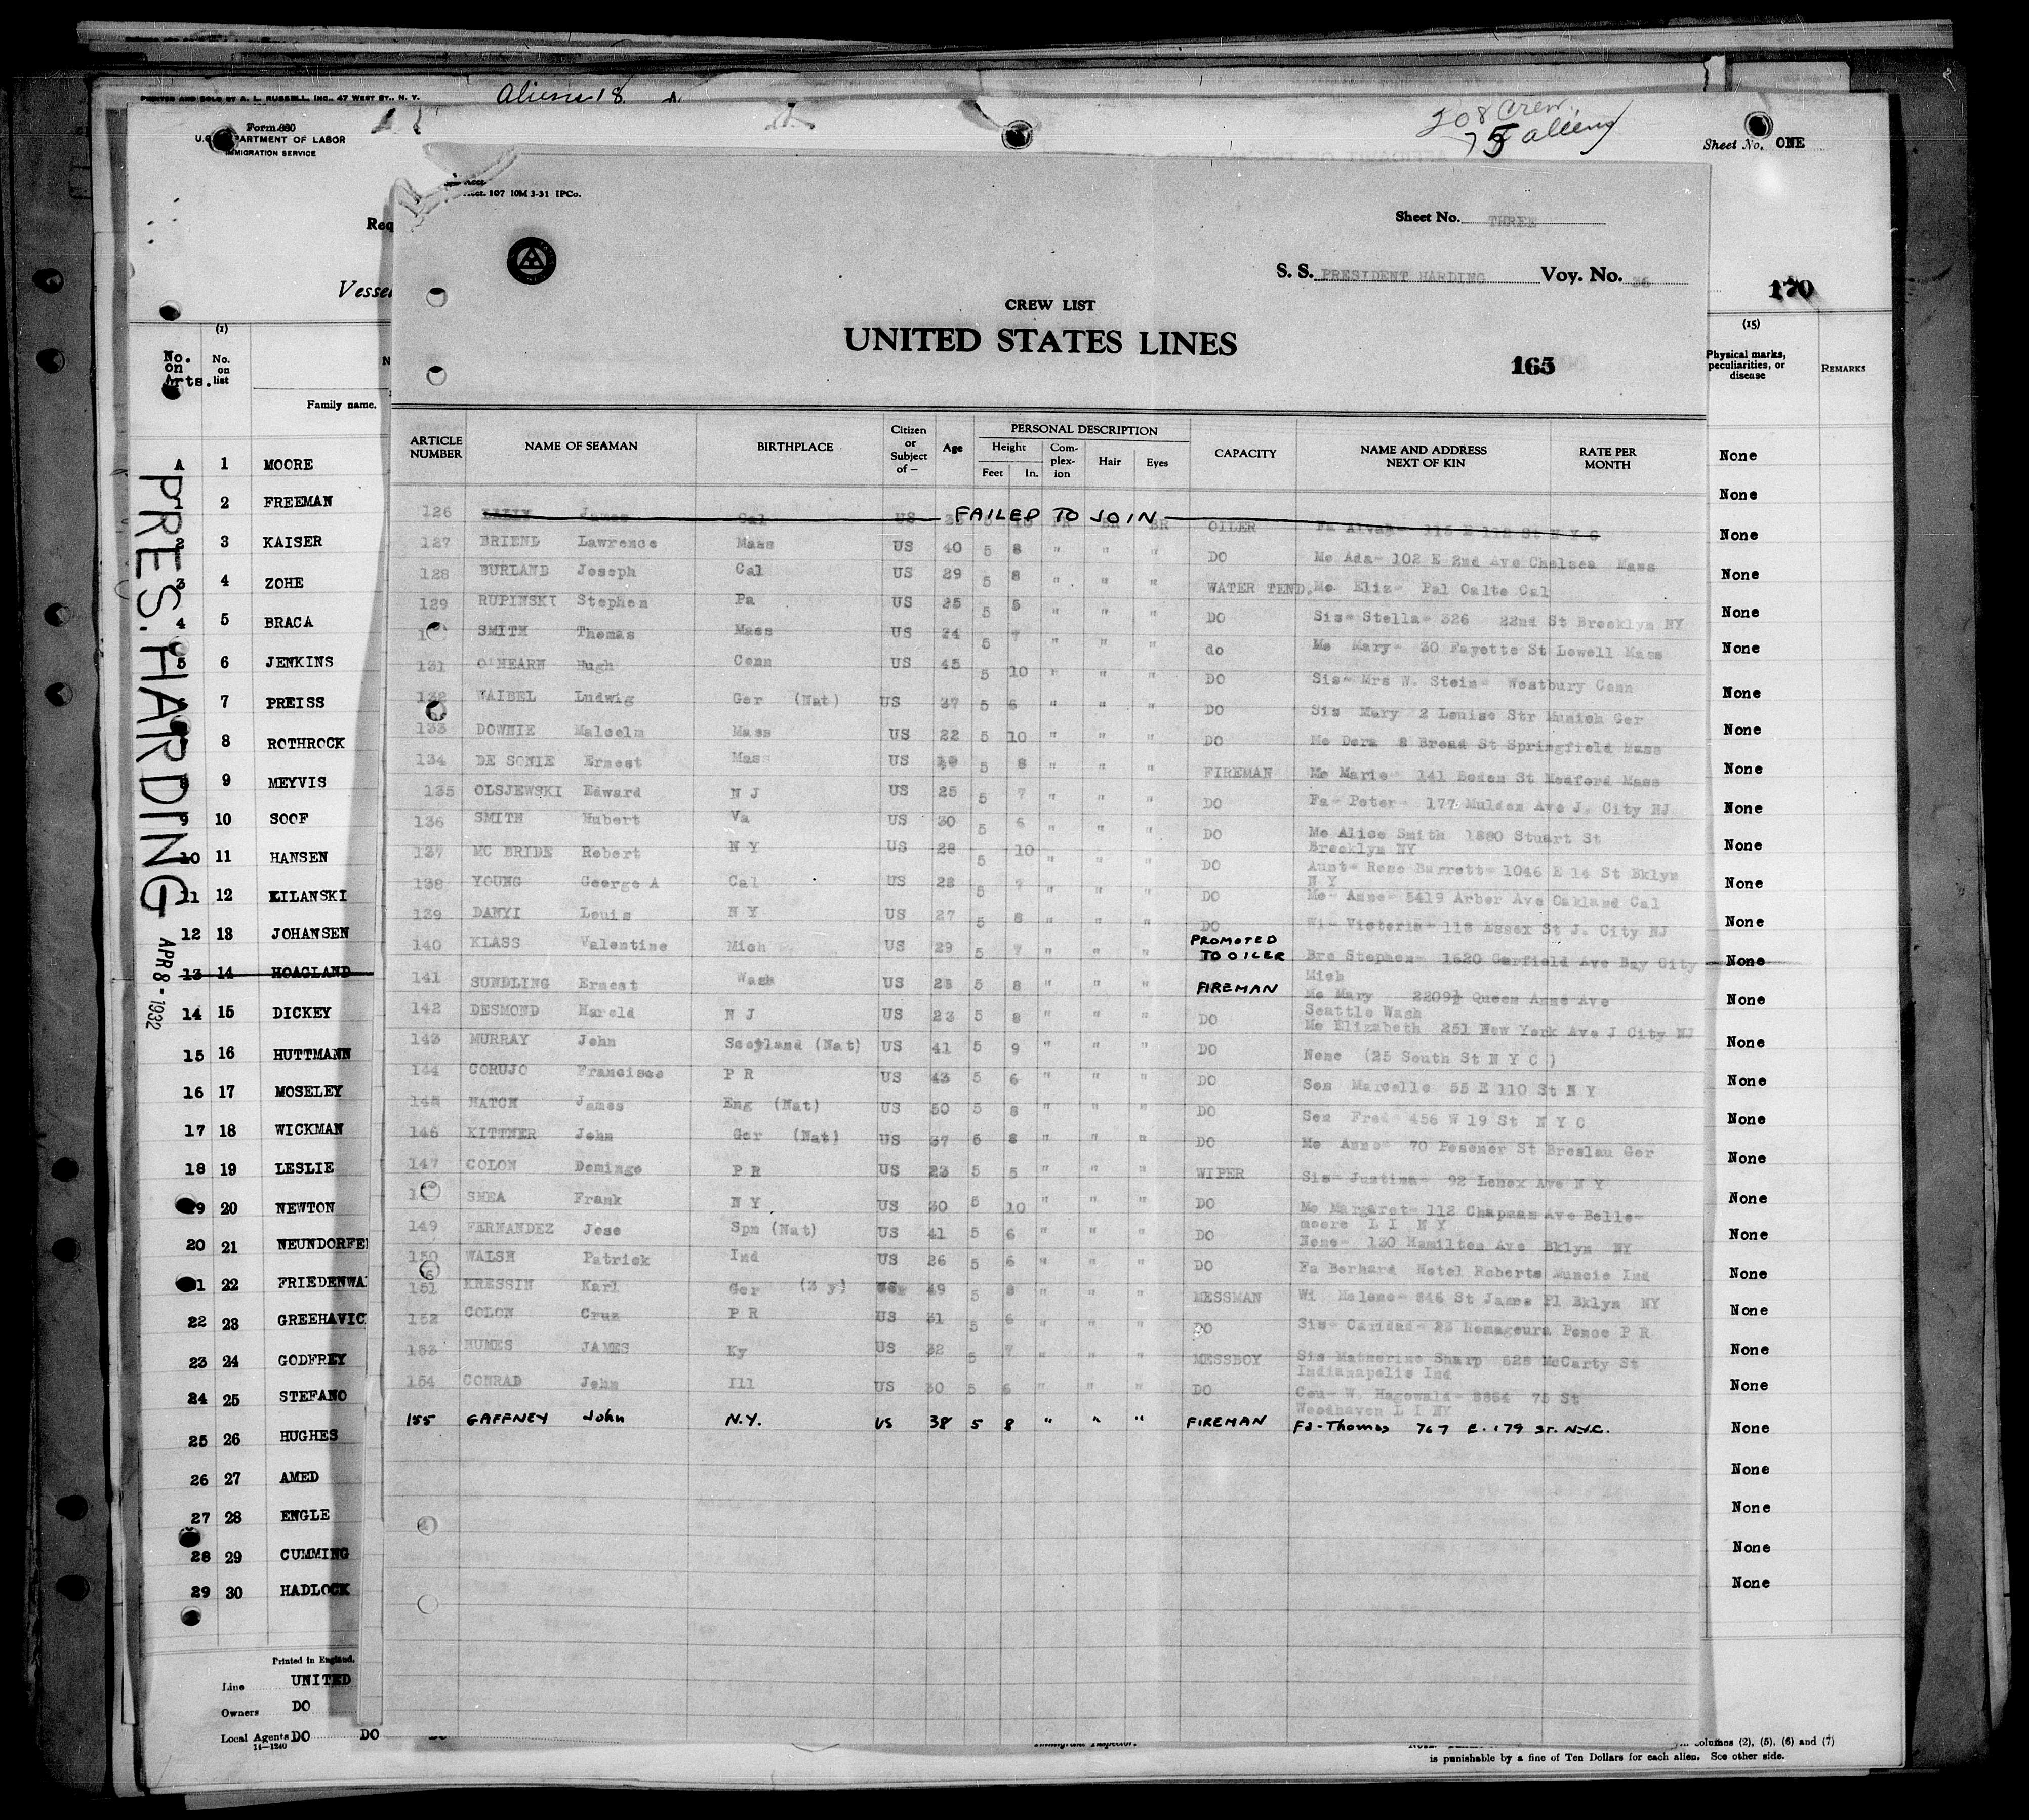 PRINTED AND SOLD BY A. L. RUSSELL, INC., 47 WEST ST., N. Y.
Aliens 18
208 Crew
75 aliens
Form 680
U.S. DEPARTMENT OF LABOR
IMMIGRATION SERVICE
Sheet No. ONE
Req
Vessel
170
107 10M 3-31 IPCo.
Sheet No. THREE
S. S. PRESIDENT HARDING Voy. No. 36
CREW LIST
UNITED STATES LINES
165
No. on Arts. (1) No. on list Family name.
(15) Physical marks, peculiarities, or disease REMARKS
ARTICLE NUMBER NAME OF SEAMAN BIRTHPLACE Citizen or Subject of — Age PERSONAL DESCRIPTION Height Feet In. Complexion Hair Eyes CAPACITY NAME AND ADDRESS NEXT OF KIN RATE PER MONTH
PRES. HARDING APR 8 - 1932
A 1 MOORE None
2 FREEMAN None
2 3 KAISER None
3 4 ZOHE None
4 5 BRACA None
5 6 JENKINS None
7 PREISS None
8 ROTHROCK None
9 MEYVIS None
9 10 SOOF None
10 11 HANSEN None
11 12 KILANSKI None
12 13 JOHANSEN None
13 14 HOAGLAND None
14 15 DICKEY None
15 16 HUTTMANN None
16 17 MOSELEY None
17 18 WICKMAN None
18 19 LESLIE None
19 20 NEWTON None
20 21 NEUNDORFE None
21 22 FRIEDENWA None
22 23 GREEHAVIC None
23 24 GODFREY None
24 25 STEFANO None
25 26 HUGHES None
26 27 AMED None
27 28 ENGLE None
28 29 CUMMING None
29 30 HADLOCK None
126 James Cal US FAILED TO JOIN BR BR OILER Fa Alvah- 115 E 112 St N Y C
127 BRIEND Lawrence Mass US 40 5 8 " " " DO Mo Ada- 102 E 2nd Ave Chelsea Mass
128 BURLAND Joseph Cal US 29 5 8 " " " WATER TEND. Mo Eliz- Pal Oalto Cal
129 RUPINSKI Stephen Pa US 25 5 5 " " " DO Sis- Stella- 326 22nd St Brooklyn NY
SMITH Thomas Mass US 24 5 7 " " " do Mo Mary- 30 Fayette St Lowell Mass
131 O'HEARN Hugh Conn US 45 5 10 " " " DO Sis- Mrs W. Stein- Westbury Conn
132 WAIBEL Ludwig Ger (Nat) US 37 5 6 " " " DO Sis Mary 2 Louise Str Munich Ger
133 DOWNIE Malcolm Mass US 22 5 10 " " " DO Mo Dora 8 Broad St Springfield Mass
134 DE SONIE Ernest Mass US 5 8 " " " FIREMAN Mo Marie- 141 St Medford Mass
135 OLSJEWSKI Edward N J US 25 5 7 " " " DO Fa- Peter- 177 Mulden Ave J. City NJ
136 SMITH Hubert Va US 30 5 6 " " " DO Mo Alice Smith 1880 Stuart St
Brooklyn NY
137 MC BRIDE Robert N Y US 28 5 10 " " " DO Aunt- Rose Barrett- 1046 E 14 St Bklyn
N Y
138 YOUNG George A Cal US 28 5 7 " " " DO Mo- Anne- 5419 Arbor Ave Oakland Cal
139 DANYI Louis N Y US 27 5 8 " " " DO Wi- Victoria- 118 Essex St J. City NJ
140 KLASS Valentine Mich US 29 5 7 " " " PROMOTED TO OILER Bro Stephen- 1620 Garfield Ave Bay City
Mich
141 SUNDLING Ernest Wash US 28 5 8 " " " FIREMAN Mo Mary 2209½ Queen Anne Ave
Seattle Wash
142 DESMOND Harold N J US 23 5 8 " " " DO Mo Elizabeth 251 New York Ave J City NJ
143 MURRAY John Scotland (Nat) US 41 5 9 " " " DO None (25 South St N Y C )
144 CORUJO Francisco P R US 43 5 6 " " " DO Son Marcello 55 E 110 St N Y
145 HATCH James Eng (Nat) US 50 5 8 " " " DO Son Fred- 456 W 19 St N Y C
146 KITTNER John Ger (Nat) US 37 5 8 " " " DO Mo Anne- 70 Posener St Breslau Ger
147 COLON Domingo P R US 23 5 5 " " " WIPER Sis- Justina- 92 Lenox Ave N Y
SHEA Frank N Y US 30 5 10 " " " DO Mo Margaret- 112 Chapman Ave Belle-
moore L I N Y
149 FERNANDEZ Jose Spn (Nat) US 41 5 6 " " " DO None- 130 Hamilton Ave Bklyn NY
150 WALSH Patrick Ind US 26 5 6 " " " DO Fa Berhard Hotel Roberts Muncie Ind
151 KRESSIN Karl Ger (3 y) 49 5 8 " " " MESSMAN Wi Helene- 846 St James Pl Bklyn NY
152 COLON Cruz P R US 31 5 6 " " " DO Sis- Caridad- 23 Ponce P R
153 HUMES JAMES Ky US 32 5 7 " " " MESSBOY Sis Katherine Sharp 628 McCarty St
Indianapolis Ind
154 CONRAD John Ill US 30 5 6 " " " DO Cou- W. Hagowald- 8854 75 St
Woodhaven L I NY
155 GAFFNEY John N.Y. US 38 5 8 " " " FIREMAN Fa-Thomas 767 E. 179 ST. N.Y.C.
Printed in England.
Line UNITED
Owners DO
Local Agents DO DO DO
14—1240
Immigrant Inspector.
columns (2), (5), (6) and (7)
is punishable by a fine of Ten Dollars for each alien. See other side.